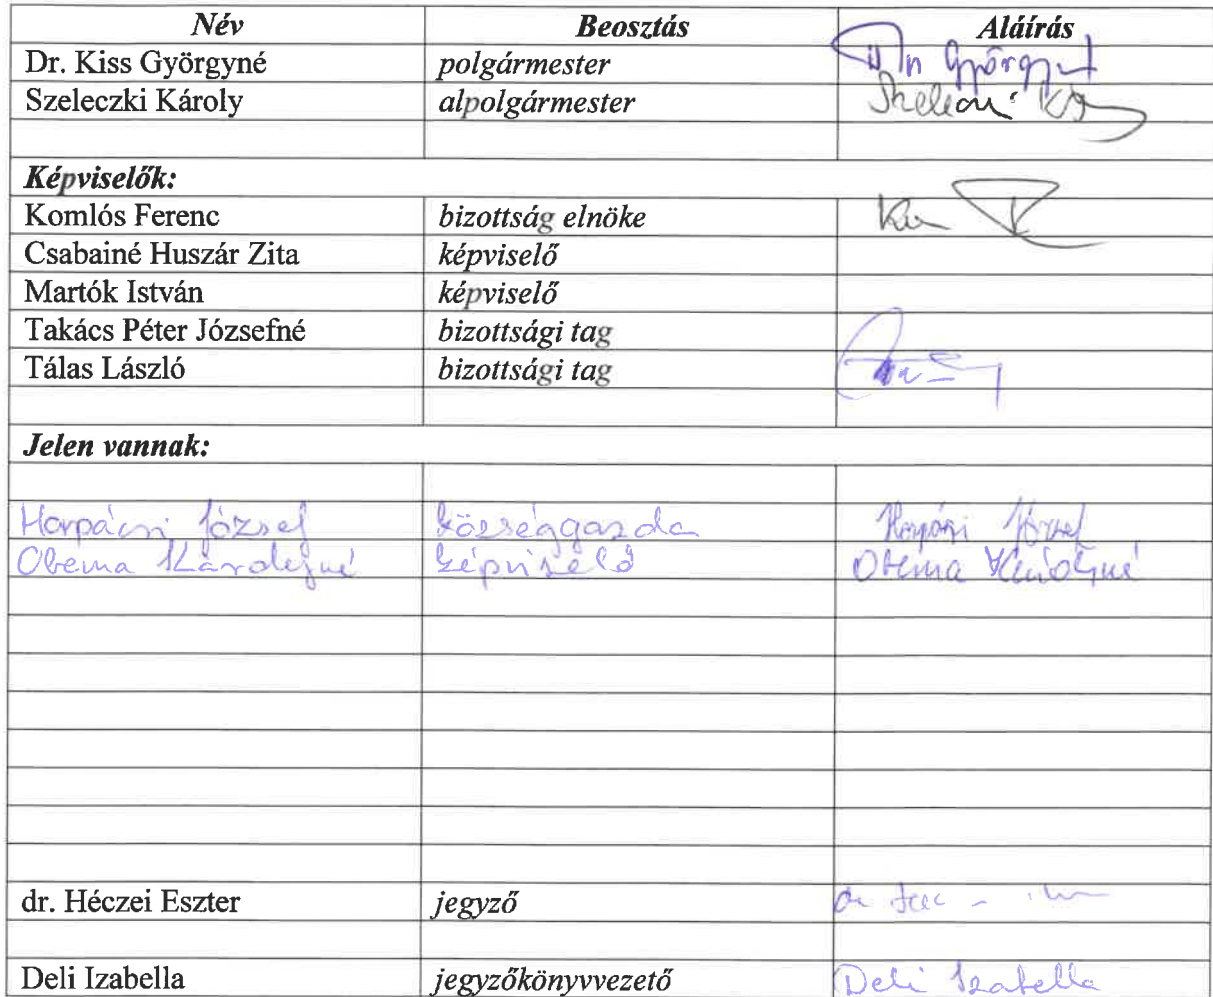 Név Beosztás Aláírás
Dr. Kiss Györgyné polgármester
Szeleczki Károly alpolgármester
Képviselők:
Komlós Ferenc bizottság elnöke
Csabainé Huszár Zita képviselő
Martók István képviselő
Takács Péter Józsefné bizottsági tag
Tálas László bizottsági tag
Jelen vannak:
Horpácsi József községgazda Horpácsi József
képviselő
dr. Héczei Eszter jegyző
Deli Izabella jegyzőkönyvvezető Deli Izabella